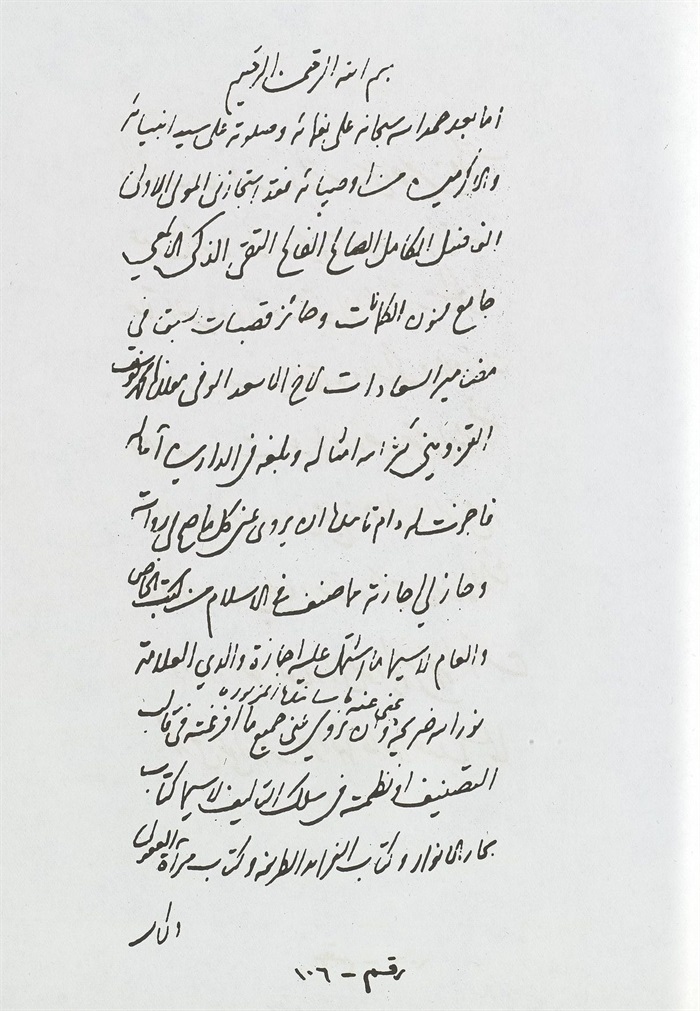 بسم الله الرحمن الرحيم
أما بعد حمد الله سبحانه على نعمائه وصلوته على سيد انبيائه
والاكرمين من اوصيائه فقد استجازني المولى الاولى
الفاضل الكامل الصالح الفالح التقي الذكي الالمعي
جامع فنون الكمالات وحائز قصبات سبق في
مضامير السعادات الاخ الاسعد الوفي مولانا محمد يوسف
القزويني كثر الله امثاله وبلغه في الدارين آماله
فاجزت له دام تاييده ان يروي عني كل ما صح لي روايته
وجاز لي اجازته مما صنف في الاسلام من كتب الخاص
والعام لا سيما ما اشتمل عليه اجازة والدي العلامة
نور الله ضريحه عني عنه باسانيدها المزبورة
وان يروي عني جميع ما افرغته في قالب
التصنيف او نظمته في سلك التاليف لا سيما كتاب
بحار الانوار وكتاب الفرائد الطريفة وكتاب مرآة العقول
وكتاب
رقم - ١٠٦